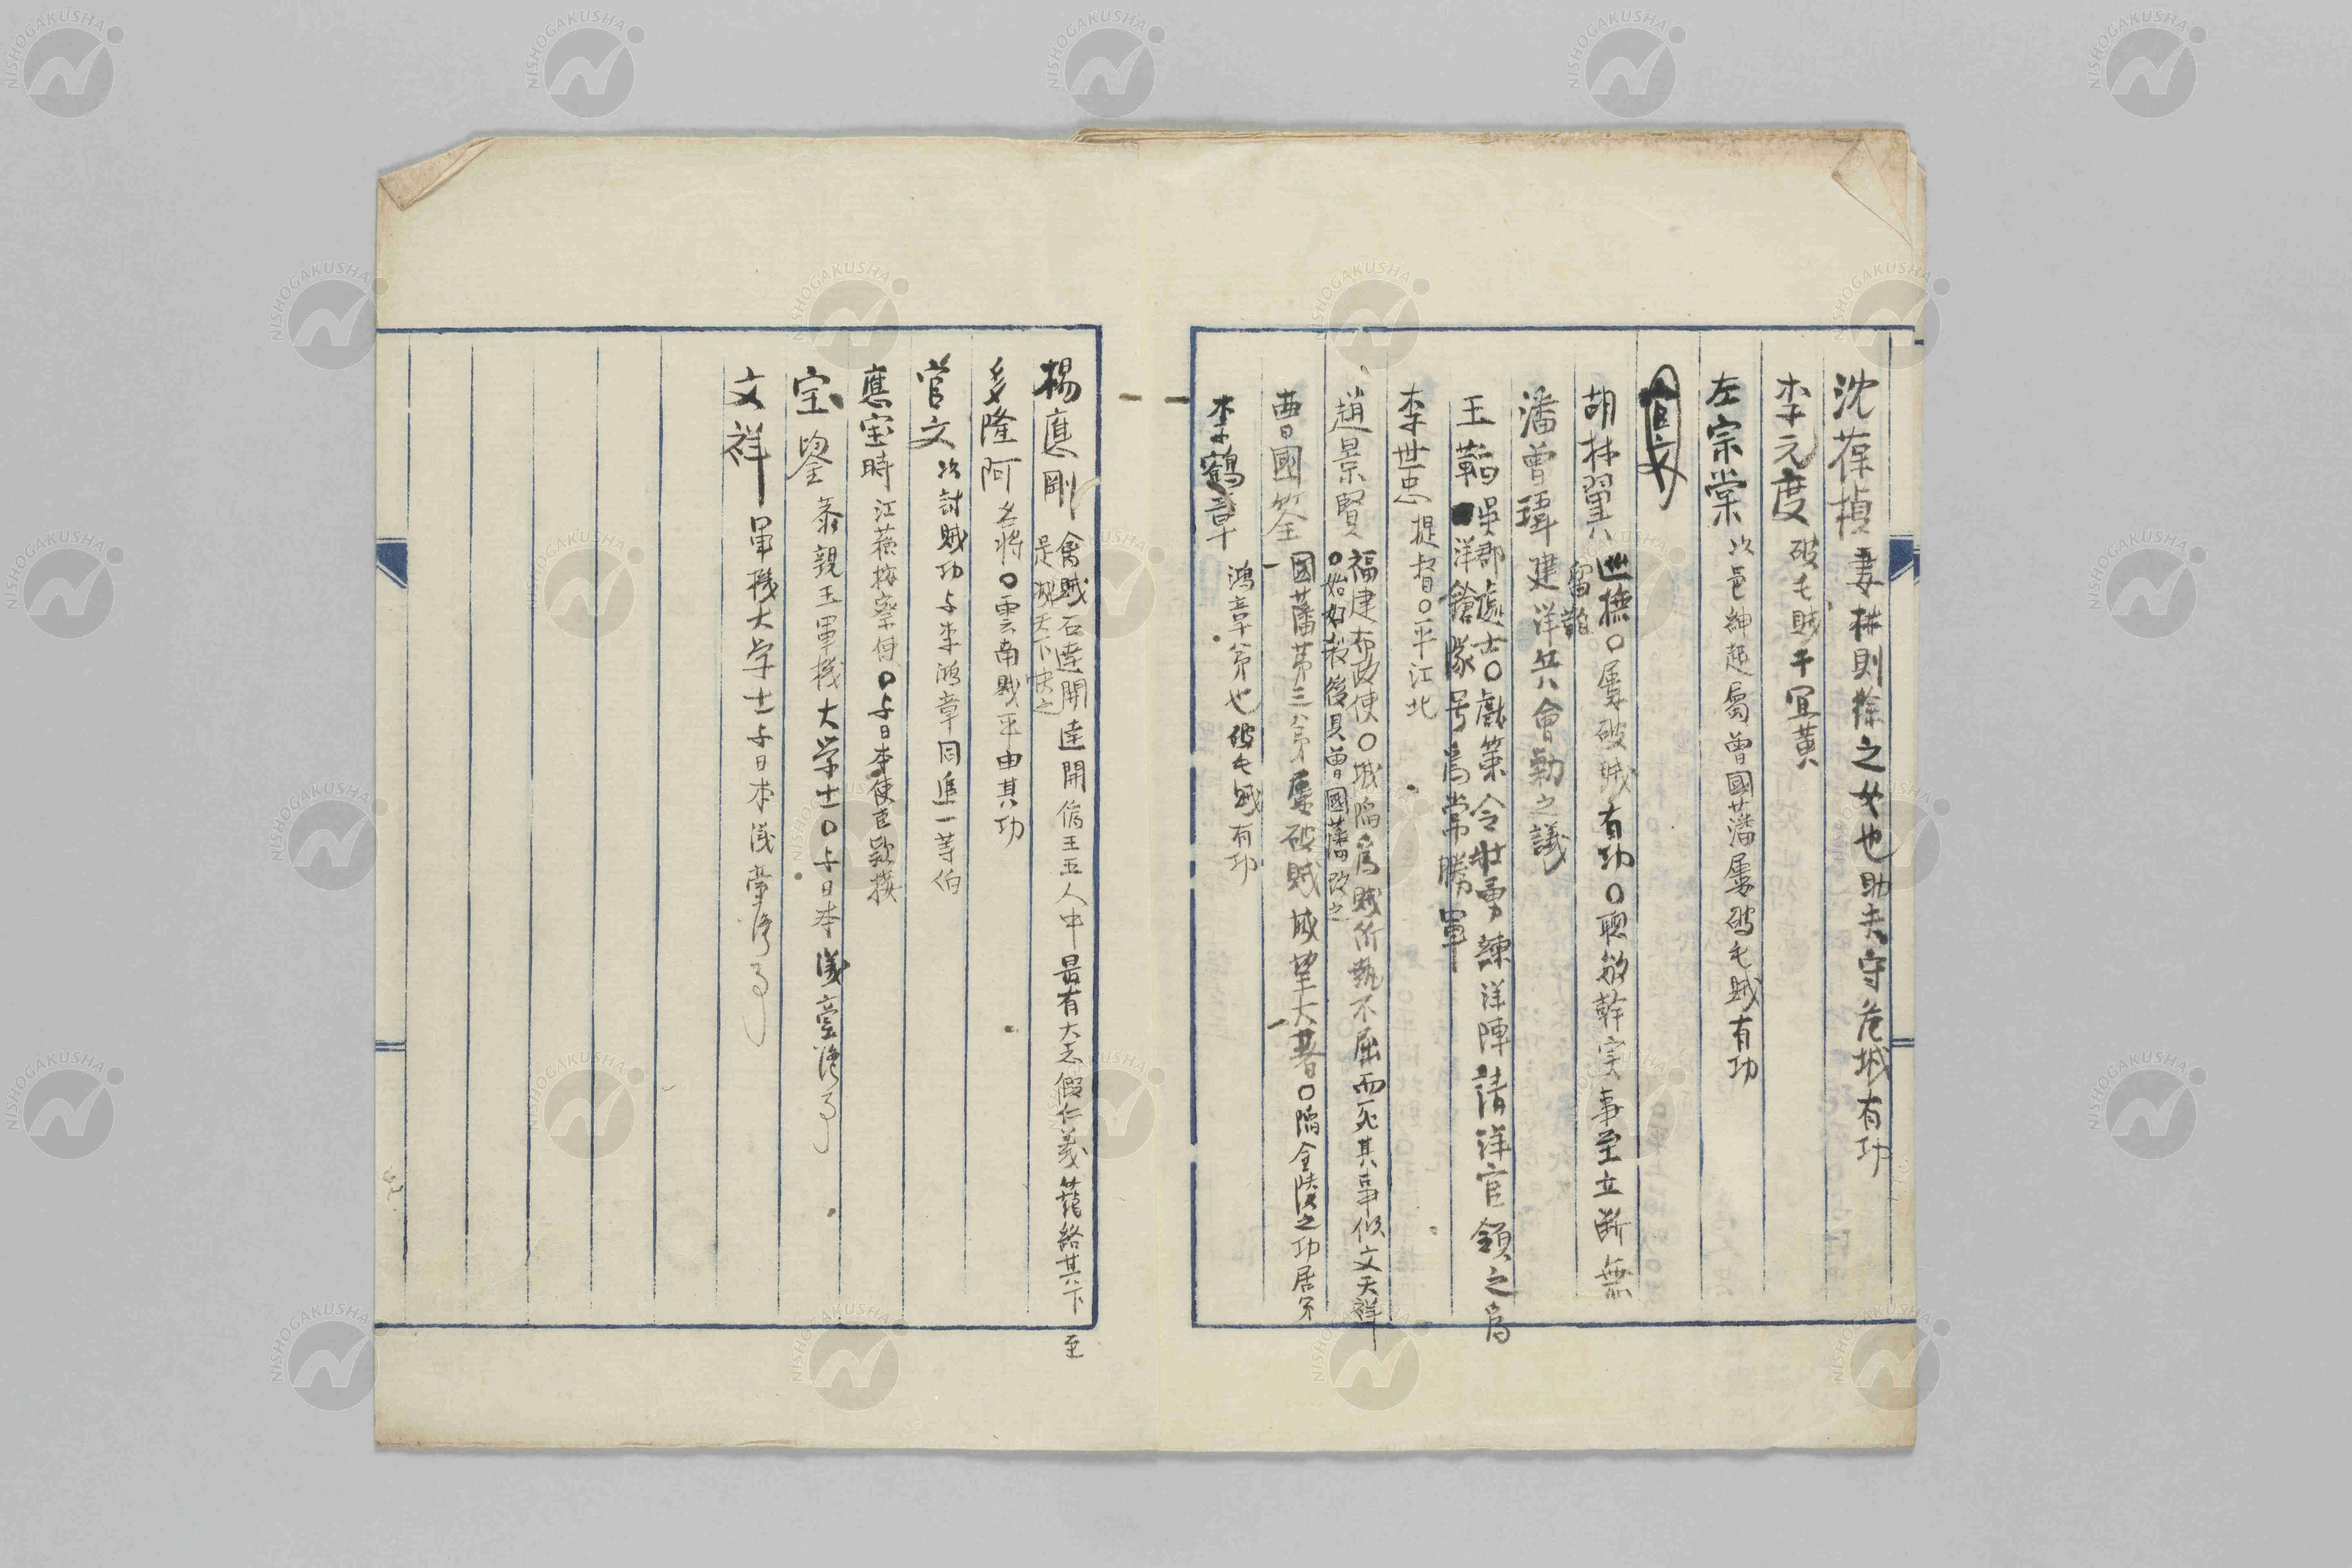 沈葆楨 妻林則徐之女也助夫守危城有功
李元度 破毛賊于宜黃
左宗棠 以邑紳起属曽國藩屡破毛賊有功
官文
胡林翼 巡撫〇屡破賊有功〇聰敏幹実事至立断無
留難
潘曽瑋 建洋兵會勦之議
王韜 吳郡處士〇獻策令壮勇練洋陣請洋官領之爲
洋鎗隊号爲常勝軍
李世忠 提督〇平江北
趙景賢 福建布政使〇城陥爲賊所執不屈而死其事似文天祥
〇始好殺後見曽國藩改之
曽國筌 國藩第三弟屡破賊威望大著〇陥金陵之功居多
李鶴章 鴻章弟也破毛賊有功
楊應剛 禽賊石達開達開偽王五人中最有大志假仁義籠絡其下至
是滅天下快之
多隆阿 名将〇雲南賊平由其功
官文 以討賊功与李鴻章同進一等伯
應宝時 江蘇按察使〇与日本使臣欵接
宝鋆 恭親王軍機大学士〇与日本議臺湾事
文祥 軍機大学士与日本議臺湾事
NISHOGAKUSHA